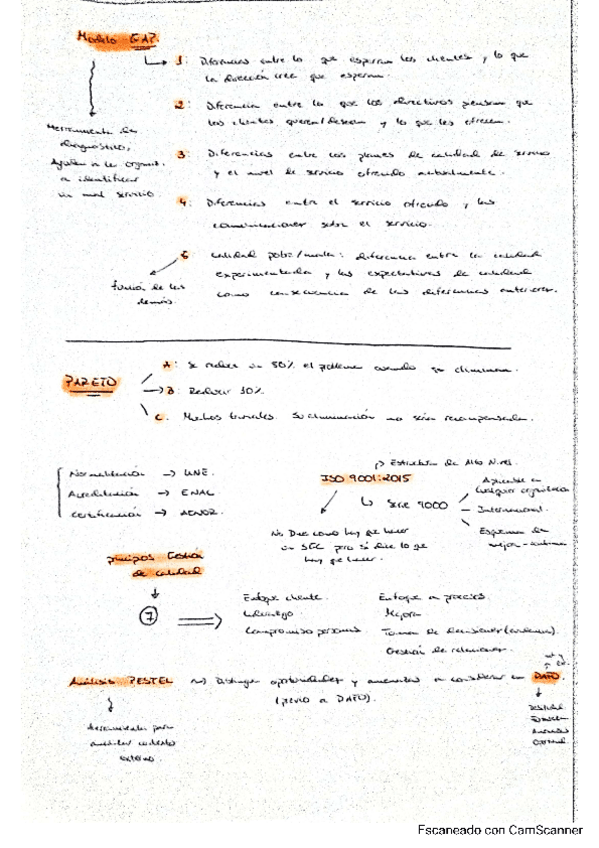 Modelo GAP.
1: Diferencias entre lo que esperan los clientes y lo que
la dirección cree que esperan.
2: Diferencia entre lo que los directivos piensan que
los clientes quieren/desean y lo que les ofrecen.
Herramienta de
diagnóstico,
Ayudan a la organiz.
a identificar
un mal servicio.
3: Diferencias entre los planes de calidad de servicio
y el nivel de servicio ofrecido actualmente.
4: Diferencias entre el servicio ofrecido y las
comunicaciones sobre el servicio.
5 Calidad pobre/mala: diferencia entre la calidad
experimentada y las expectativas de calidad
como consecuencia de las diferencias anteriores.
función de las
demás.
PARETO
A: Se reduce un 50% el problema cuando se elimina.
B: Reducir 30%
C. Muchos triviales. Su eliminación no sería recompensada.
Normalización → UNE.
Acreditación → ENAC
Certificación → AENOR.
Estructura de Alto Nivel
ISO 9001:2015
Serie 9000
Aplicable en
cualquier organización
Internacional.
Esquema de
mejora continua
No Dice como hay que hacer
un SGC pero sí dice lo que
hay que hacer.
principios Gestión
de calidad
7
Enfoque cliente.
Liderazgo
Compromiso personas
Enfoque a procesos.
Mejora
Toma de decisiones (evidencia).
Gestión de relaciones.
Análisis PESTEL
Distinguir oportunidades y amenazas a considerar en DAFO.
(previo a DAFO).
Herramienta para
analizar contexto
externo.
Debilidad
Amenaza
Fscaneado con CamScanner